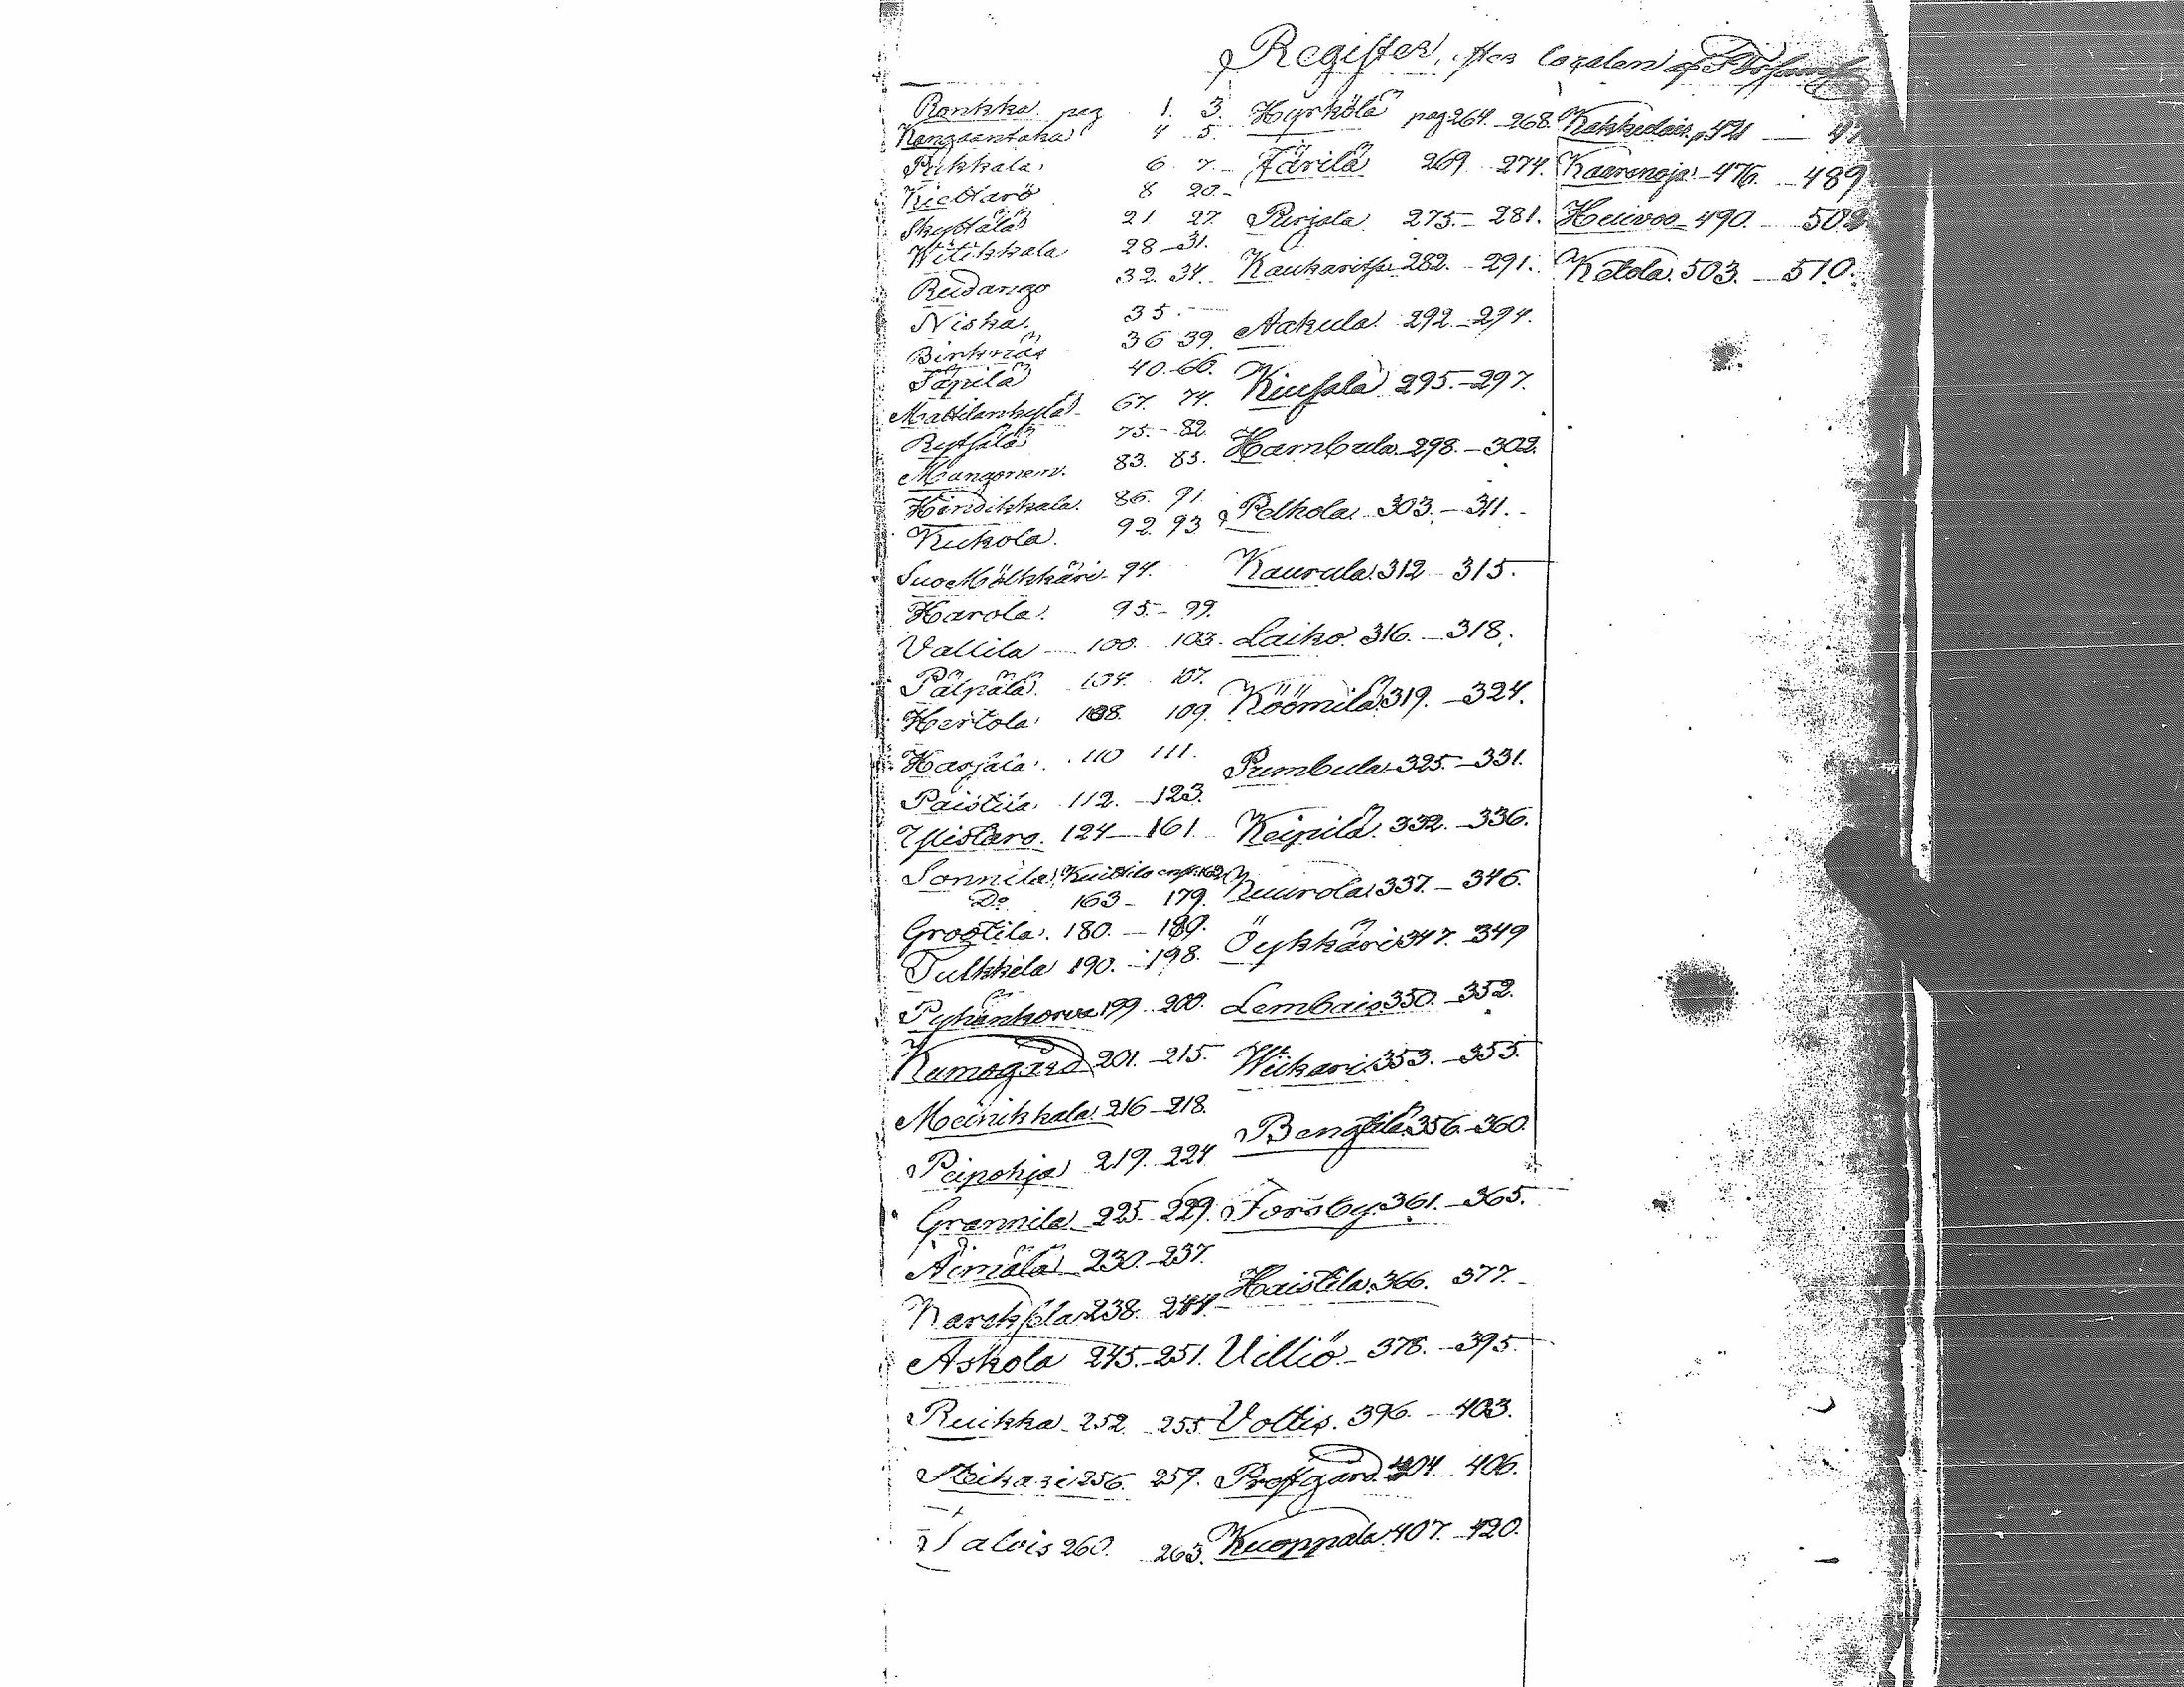 Register, efter localen af
Ronkka pag 1. 3.
Kangaantaka 4 5.
Pukkala 6 7.
Kiettarö 8 20.
Skyttälä 21 27.
Witikkala 28 - 31.
Rudango 32. 34.
Niska. 35.
Birknäs 36 39.
Täpilä 40. 66.
Mattilankylä 67. 74.
Rytsälä 75. - 82.
Mangonem. 83. 85.
Hindikkala. 86. 91.
Kukola. 92. 93
Suo Mölkkäri 94.
Harola. 95. - 99.
Vallila 100. 103.
Pälpälä. 104. 107.
Hertola 108. 109.
Harjala. 110 111.
Paistila 112. - 123.
Ylistaro. 124 - 161.
Sonnila, Kuittila 162
Do 163 - 179.
Grootila. 180. - 189.
Tulkkila 190. - 198.
Pyhänkorva 199. 200.
Kumogård 201. - 215.
Meinikkala. 216 - 218.
Peipohja 219. 224
Grannila 225. 229.
Äimälä 230. - 237.
Kareksela 238. 244.
Askola 245. - 251.
Ruikka 252. 255.
Aikari 256. 259.
Talois 260. 263.
Hyrkölä pag 264. - 268.
Järilä 269 274.
Pirjola 275. - 281.
Kaukaritsa 282. - 291.
Aakula. 292. - 294.
Kiusala 295. - 297.
Hambula 298. - 302.
Pelhola 303. - 311.
Kaurula. 312 - 315.
Laiko 316. - 318.
Köömilä 319. - 324.
Pumbula 325. - 331.
Keipilä. 332. - 336.
Kuurola 337. - 346.
Öykkäri 347. 349
Lembais 350. - 352.
Wiikari 353. - 355.
Bengtilä 356. - 360.
Forsby. 361. - 365.
Haistila. 366. 377.
Villiö. 378. - 395.
Voltis. 396. - 403.
Prostgård 404. 406.
Kuoppala 407. - 420.
Kakkulais. p. 421 -
Kaarenoja 476. - 489
Huivoo 490. - 502
Ketola. 503. - 510.